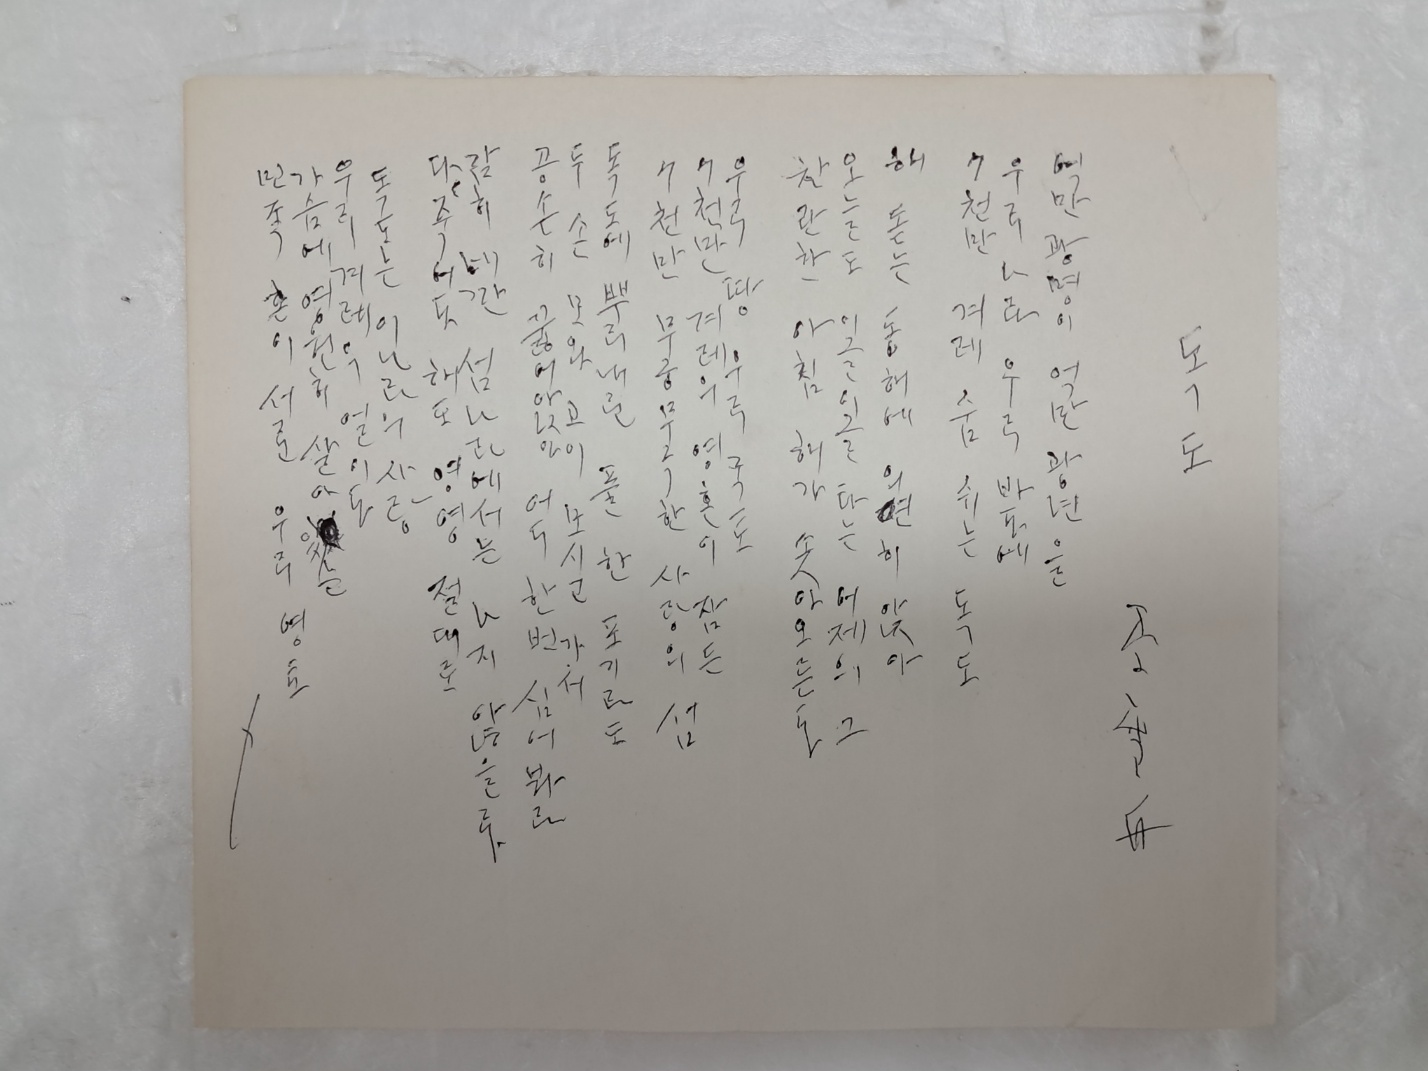 독도
억만 광명이 억만 광년을
우리 나라 우리 바다에
7천만 겨레 숨 쉬는 독도
해 돋는 동해에 의연히 앉아
오늘도 이글이글 타는 어제의 그
찬란한 아침 해가 솟아오른다
우리 땅 우리 국토
7천만 겨레의 영혼이 잠든
7천만 무궁무극한 사랑의 섬
독도에 뿌리내린 풀 한 포기라도
두 손 모아 고이 모시고 가서
공손히 꿇어앉아 어디 한번 심어봐라
감히 네깐 섬나라에서는 나지 않을
다 죽어도 해도 영영 절대로
독도는 이 나라의 사랑
우리 겨레의 얼이다
가슴에 영원히 살아 있는
민족 혼이 서린 우리 영토